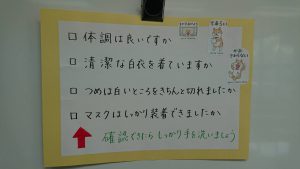 □ 体調は良いですか
□ 清潔な白衣を着ていますか
□ つめは白いところをきちんと切れましたか
□ マスクはしっかり装着できましたか
確認できたら しっかり手を洗いましょう